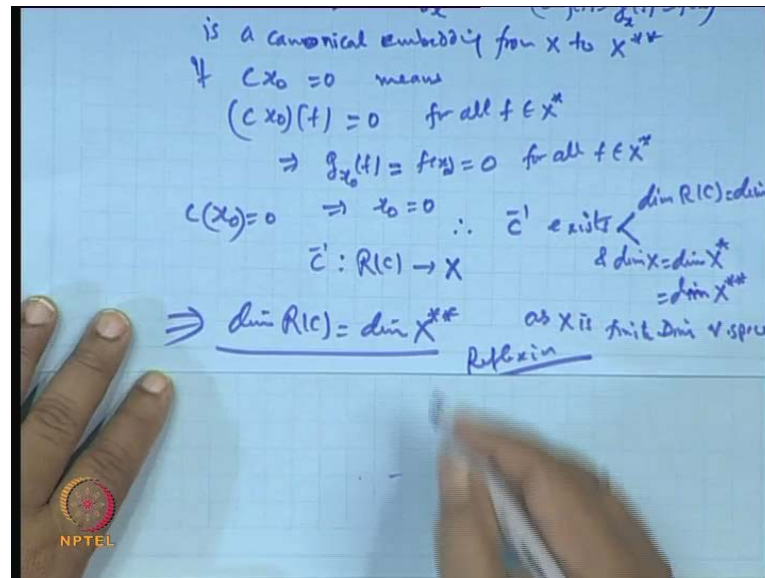 is a canonical embedding from X to X**
If Cx₀ = 0 means
(Cx₀)(f) = 0 for all f ∈ X*
⇒ g_{x₀}(f) = f(x₀) = 0 for all f ∈ X*
C(x₀) = 0 ⇒ x₀ = 0 ∴ C⁻¹ exists < dim R(C) = dim
C⁻¹ : R(C) → X & dim X = dim X*
= dim X**
⇒ dim R(C) = dim X** as X is finite Dim V. space
Reflexive
NPTEL